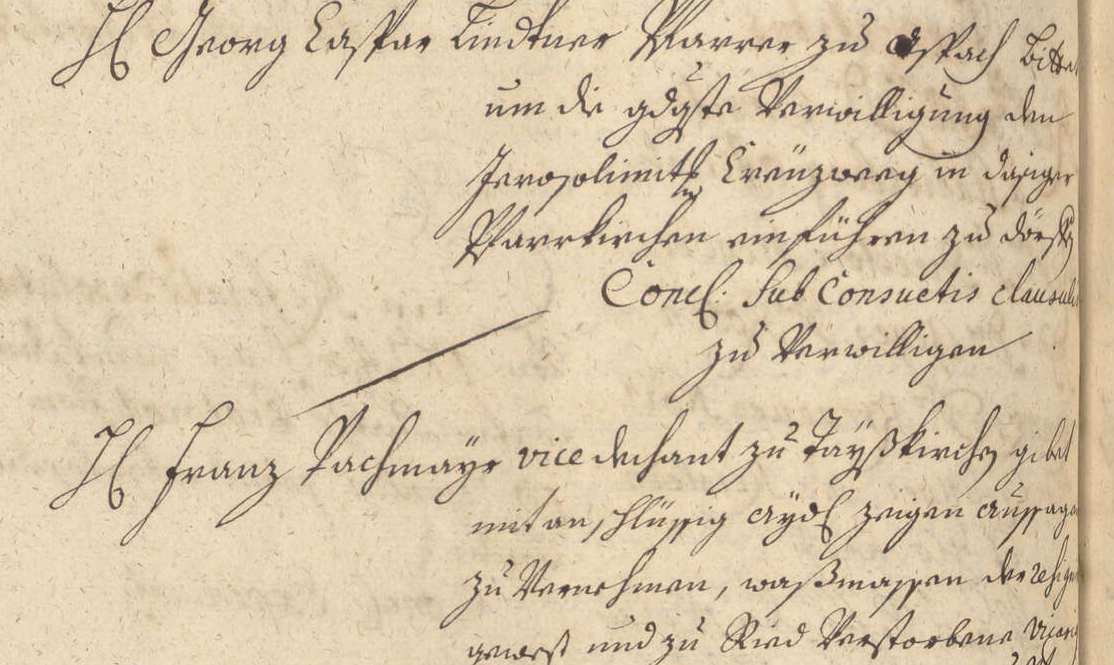 H Georg Caspar Lindtner Pfarrer zu Aspach bitte
um die gdgste Verwilligung den
Jerosolimit: Creüzweeg in dasiger
Pfarrkirchen einführen zu dörffen
Concl: Sub Consuetis clausulis
zu Verwilligen
H Franz Pachmayr vice dechant zu Täyßkirchen gibet
mit anschlüssig aydl zeigen aussage
zu Vernehmen, waßmassen der
gewest und zu Ried Verstorbene Vicari